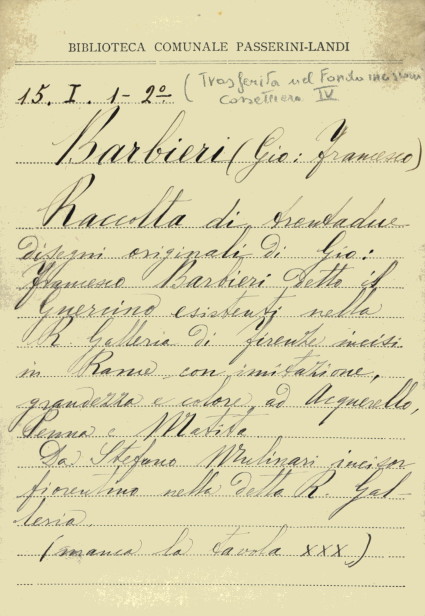 BIBLIOTECA COMUNALE PASSERINI-LANDI
15. I. 1-2º (Trasferita nel Fondo incisioni
Cassettiera IV
Barbieri (Gio: Francesco)
Raccolta di trentadue
disegni originali di Gio:
Francesco Barbieri detto il
Guercino esistenti nella
R. Galleria di firenze incisi
in Rame con imitazione,
grandezza e colore ad Acquerello,
Penna e Matita
Da Stefano Mulinari incisor
fiorentino nella detta R. Gal-
leria.
(manca la tavola XXX)